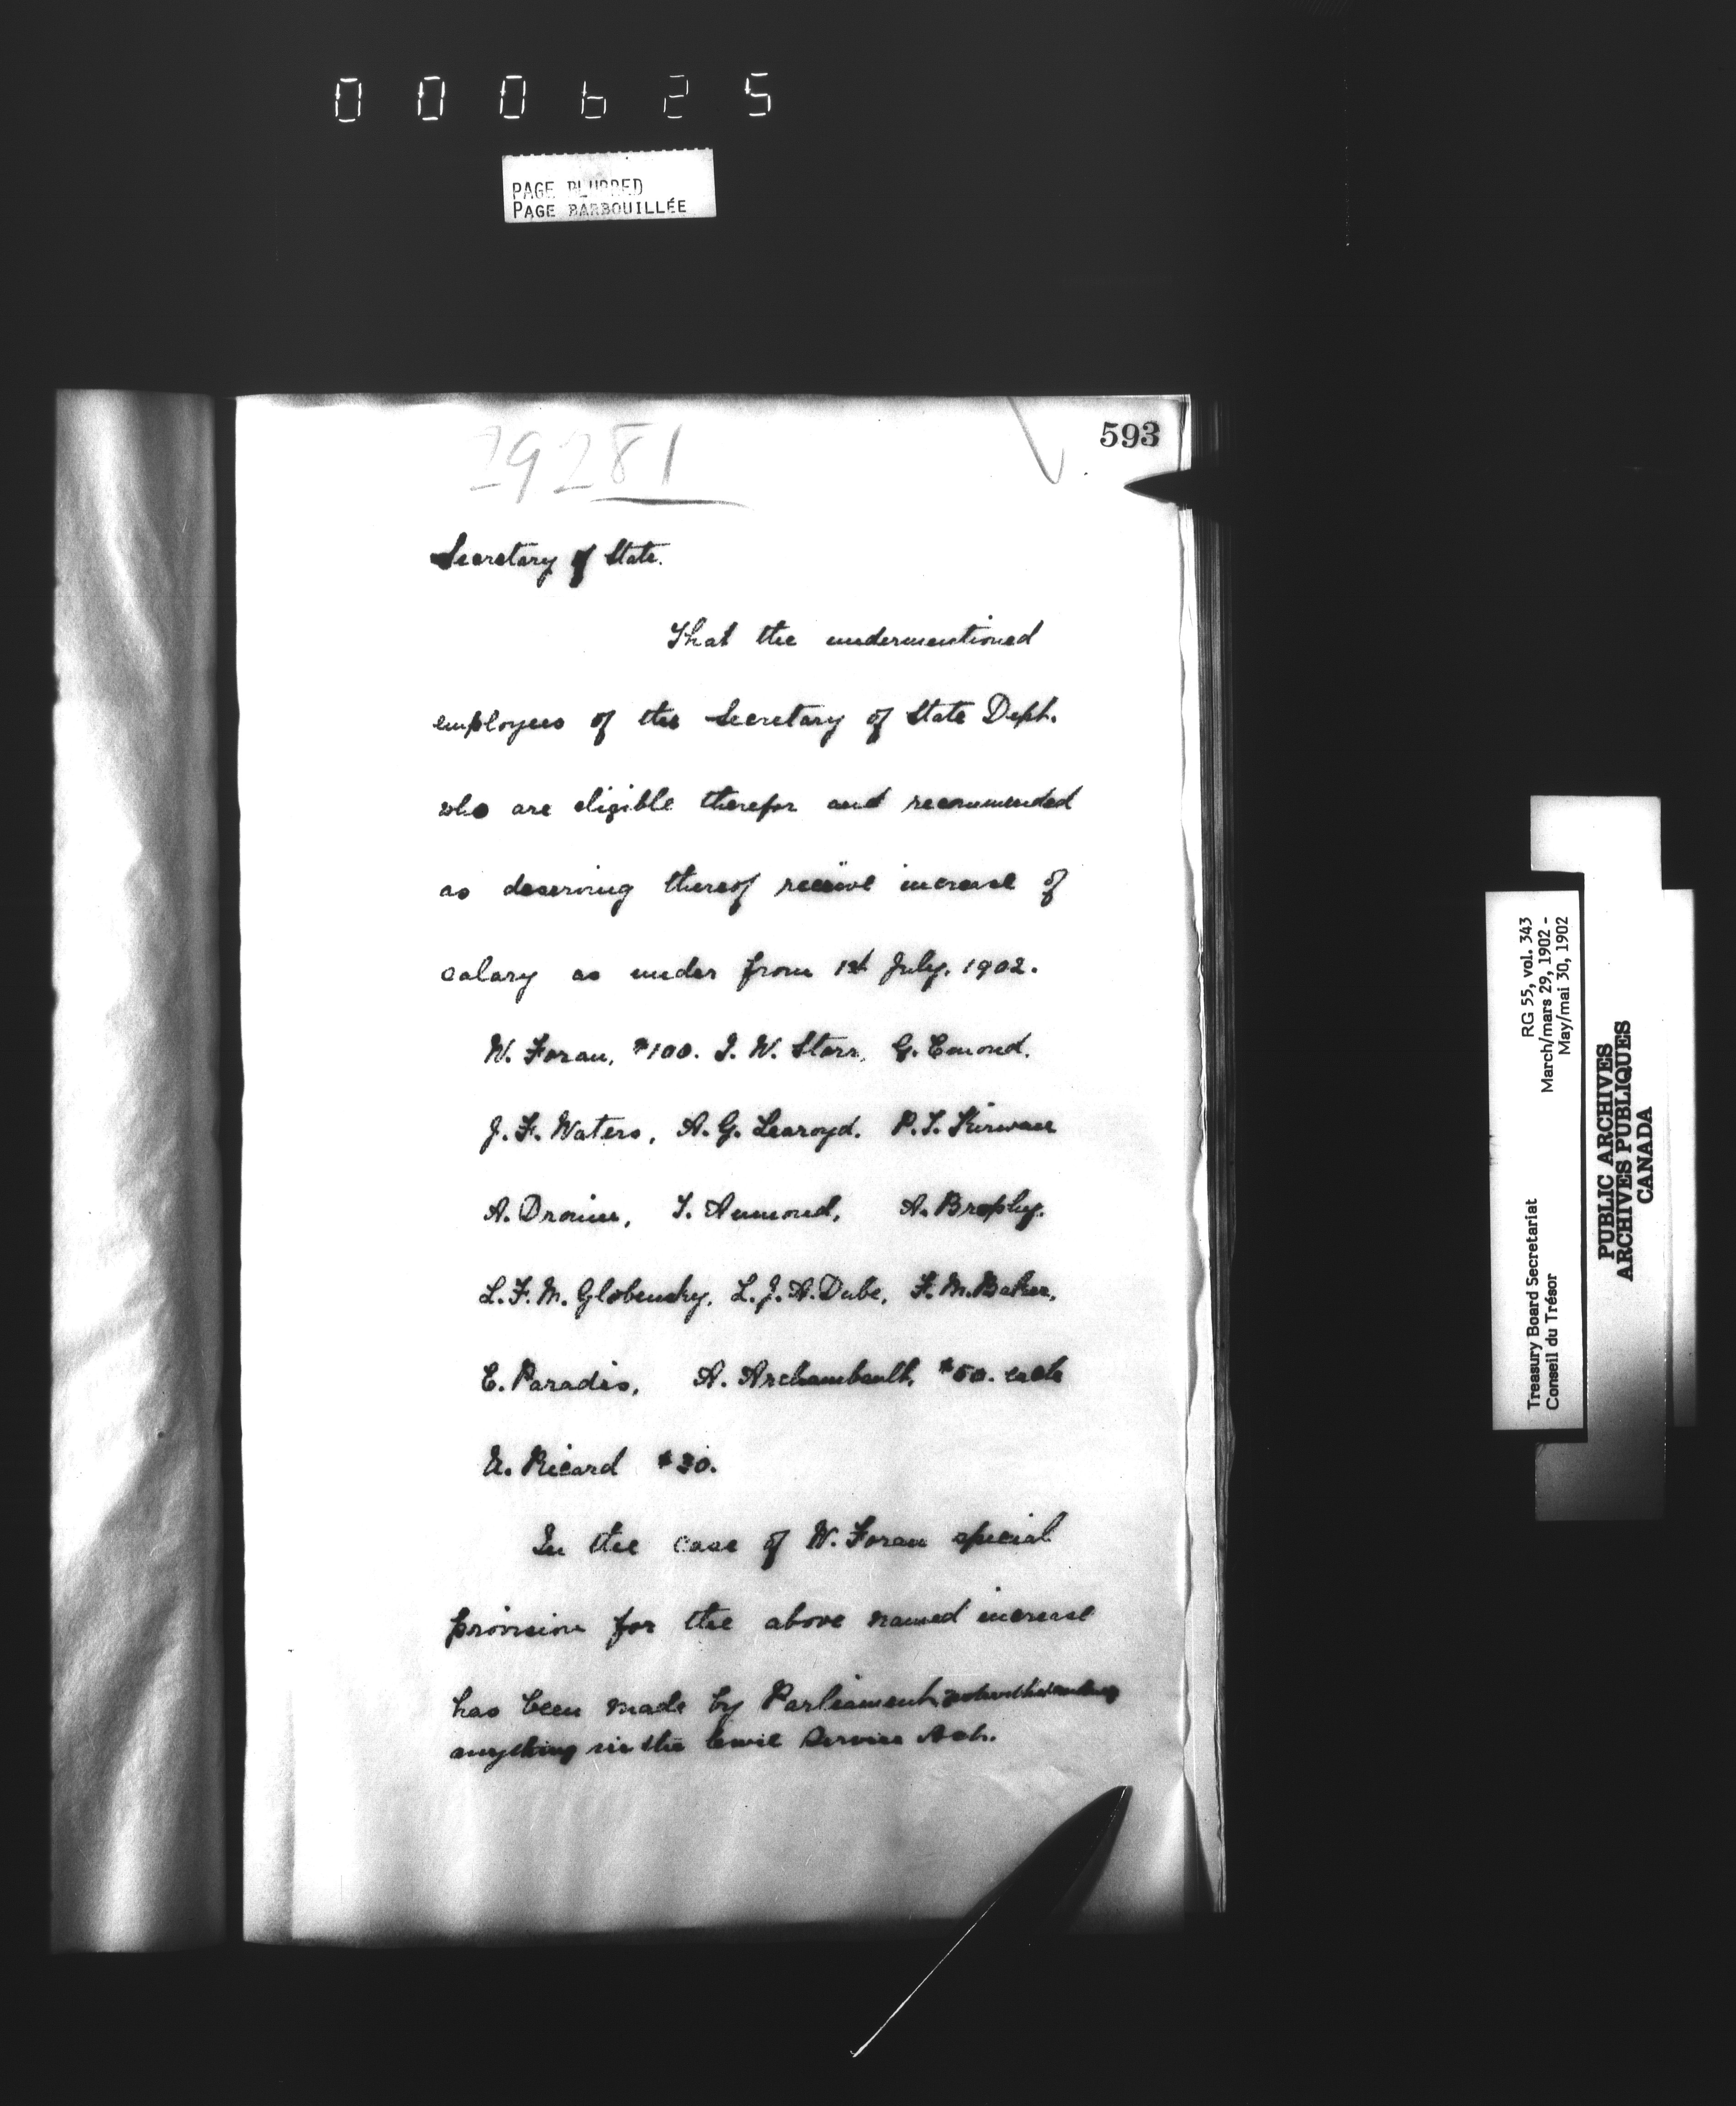 000625
PAGE BLURRED
PAGE BARBOUILLÉE
593
29281
Secretary of State.
That the undermentioned
employees of the Secretary of State Dept.
who are eligible therefor and recommended
as deserving thereof receive increase of
salary as under from 1st July, 1902.
W. Foran, $100. J. W. Starr, G. Emond.
J. F. Waters, A. G. Learoyd. P. T. Kirwan
A. Drouin, T. Aumond, A. Brophy.
L. F. M. Globensky, L. J. A. Dube, F. M. Baker,
E. Paradis, A. Archambault, $50. each
Ricard $30.
In the case of W. Foran special
provision for the above named increase
has been made by Parliament notwithstanding
anything in the Civil Service Act.
Treasury Board Secretariat RG 55, vol. 343
Conseil du Trésor March/mars 29, 1902 -
May/mai 30, 1902
PUBLIC ARCHIVES
ARCHIVES PUBLIQUES
CANADA